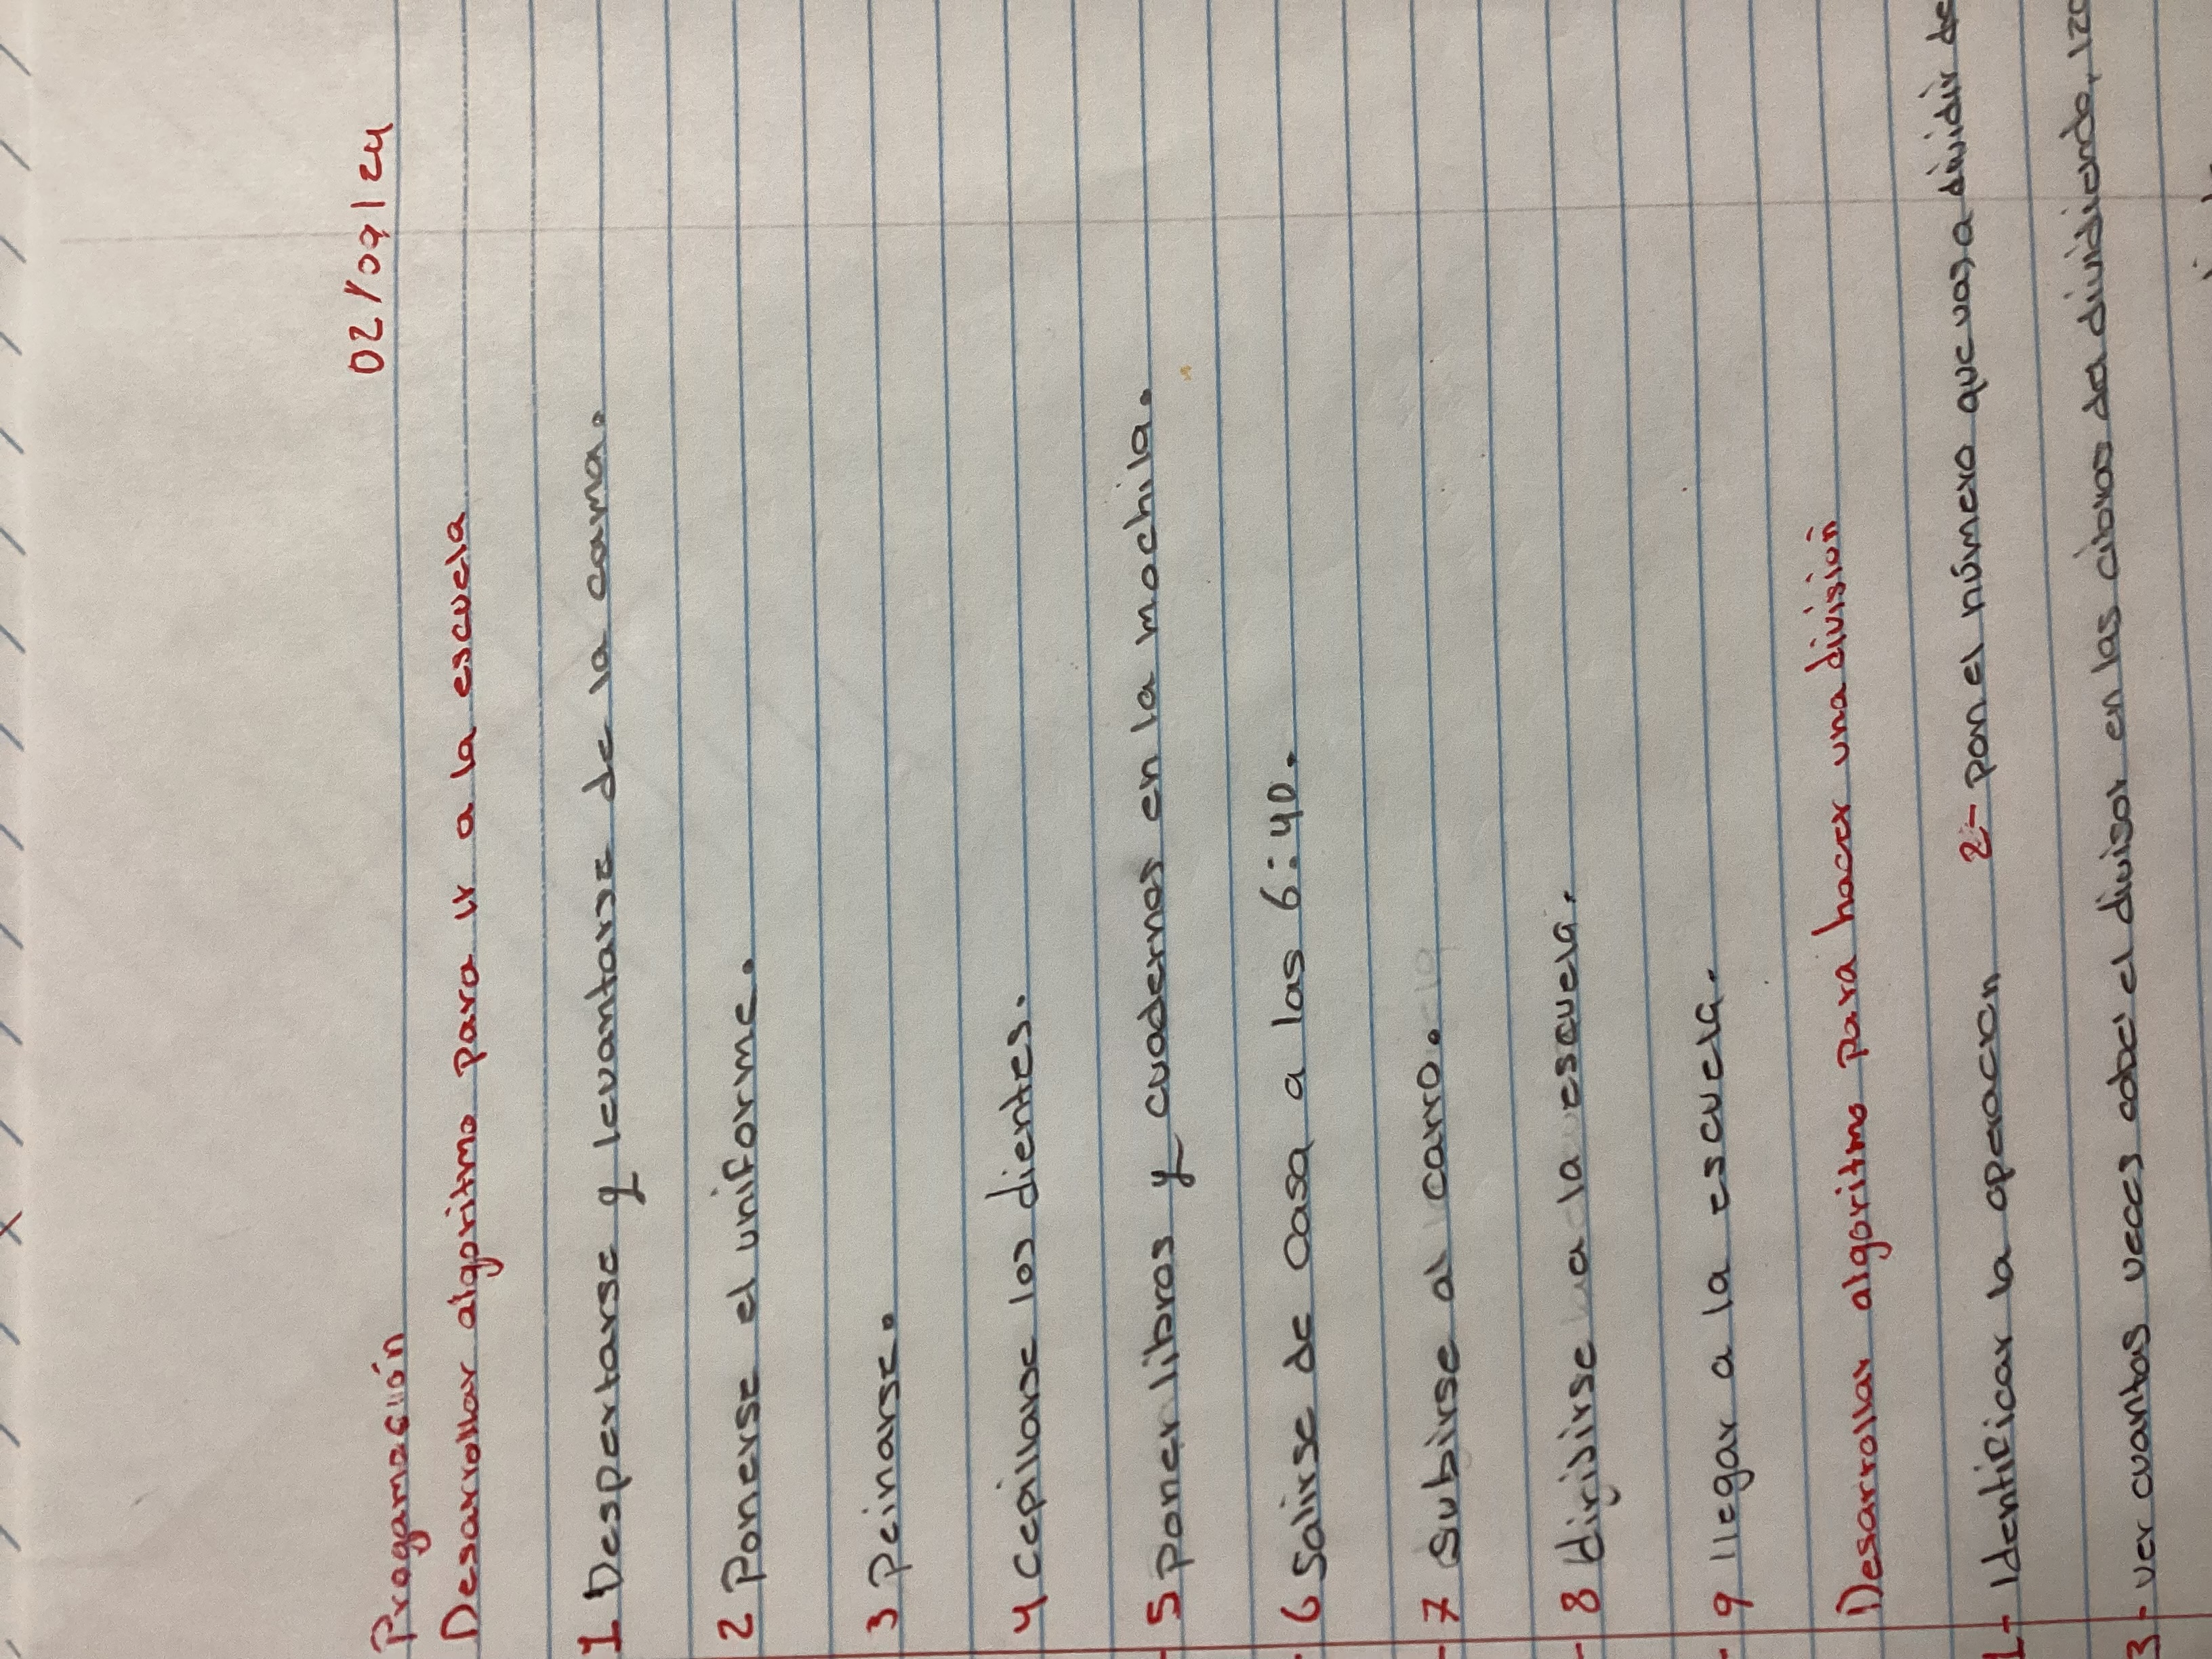 02/09/24
Progamación
Desarrollar algoritmo para ir a la escuela
1 Despertarse y levantarse de la cama.
2 Ponerse el uniforme.
3 Peinarse.
4 cepillarse los dientes.
- 5 poner libros y cuadernos en la mochila.
- 6 Salirse de casa a las 6:40.
- 7 Subirse al carro.
- 8 dirijirse a la escuela.
- 9 llegar a la escuela.
Desarrollar algoritmo para hacer una division
1- Identificar la operacen 2- pon el número que vas a dividir de
3- ver cuantas veces cabe el divisor en las cibras del dividiendo, izq